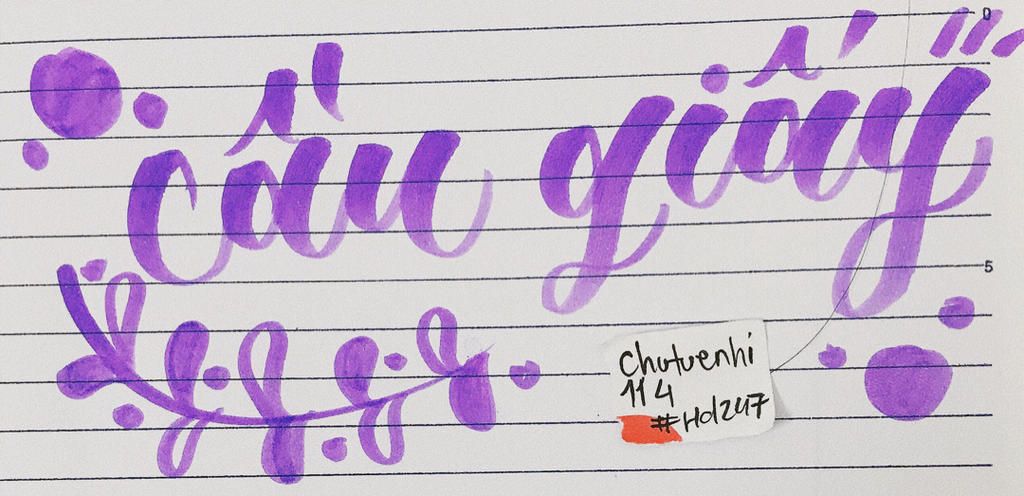 0
cầu giấy
5
chutuenhi
114
#Hd247